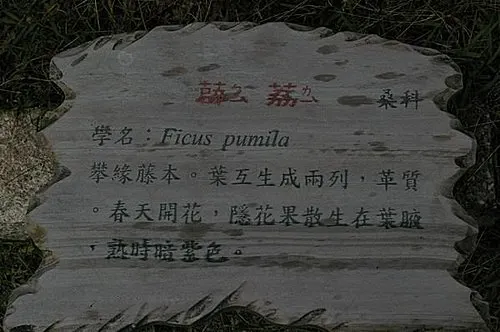 薜ㄅㄧˋ 荔ㄌㄧˋ 桑科
學名：Ficus pumila
攀緣藤本。葉互生成兩列，革質
。春天開花，隱花果散生在葉腋
，熟時暗紫色。